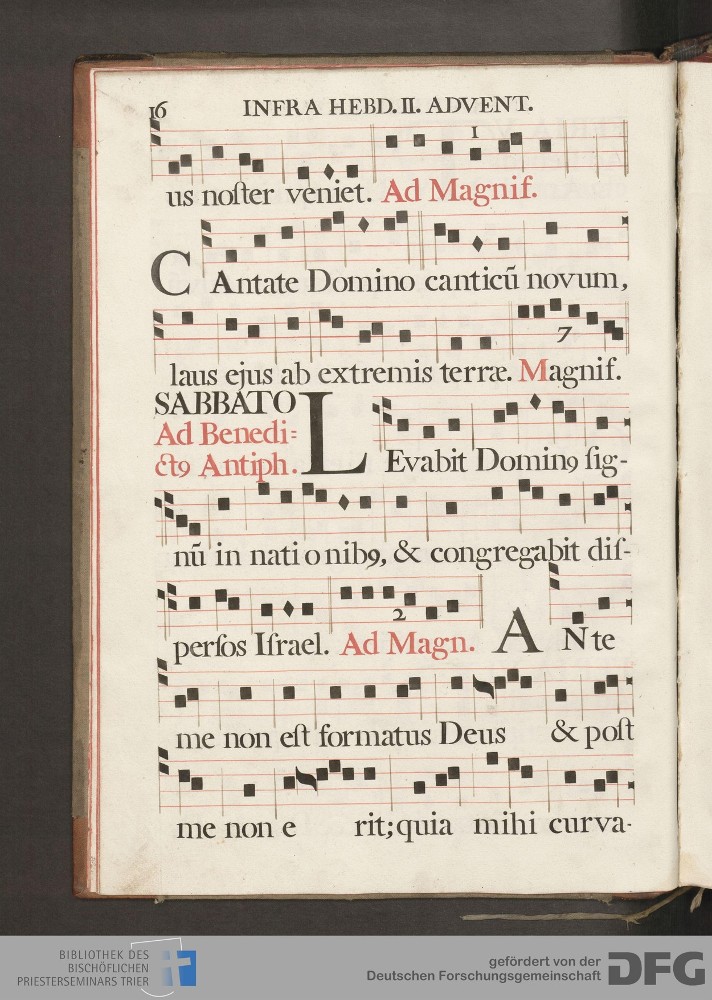 16 INFRA HEBD. II. ADVENT.
1
us noſter veniet. Ad Magnif.
CAntate Domino canticū novum,
7
laus ejus ab extremis terræ. Magnif.
SABBATO
Ad Benedi=
ct9 Antiph.
LEvabit Domin9 ſig-
nū in nationib9, & congregabit diſ-
2
perſos Iſrael. Ad Magn. ANte
me non eſt formatus Deus & poſt
me non e rit; quia mihi curva-
BIBLIOTHEK DES
BISCHÖFLICHEN
PRIESTERSEMINARS TRIER
gefördert von der
Deutschen Forschungsgemeinschaft
DFG